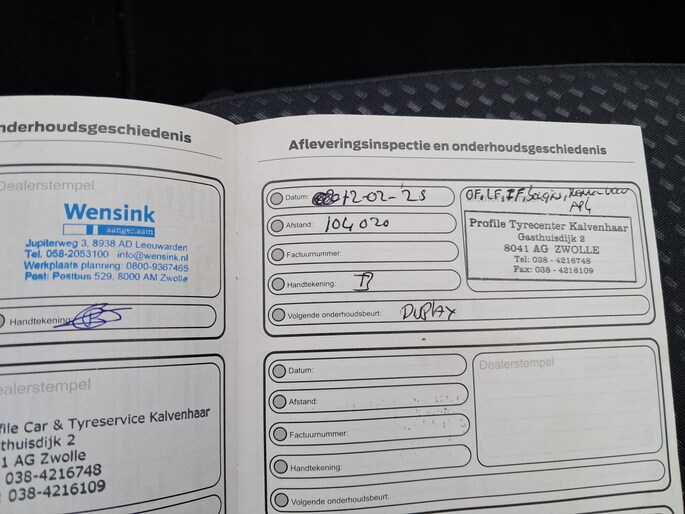 nderhoudsgeschiedenis
Dealerstempel
Wensink
aangenaam
Jupiterweg 3, 8938 AD Leeuwarden
Tel. 058-2053100 info@wensink.nl
Werkplaats planning: 0800-9367465
Post: Postbus 529, 8000 AM Zwolle
Handtekening:
ealerstempel
file Car & Tyreservice Kalvenhaar
sthuisdijk 2
1 AG Zwolle
038-4216748
038-4216109
Afleveringsinspectie en onderhoudsgeschiedenis
Datum: 12-02-'25
Afstand: 104020
Factuurnummer:
Handtekening:
Volgende onderhoudsbeurt:
OF, LF, IF,
APK
Profile Tyrecenter Kalvenhaar
Gasthuisdijk 2
8041 AG ZWOLLE
Tel: 038 - 4216748
Fax: 038 - 4216109
Datum:
Afstand:
Factuurnummer:
Handtekening:
Volgende onderhoudsbeurt:
Dealerstempel